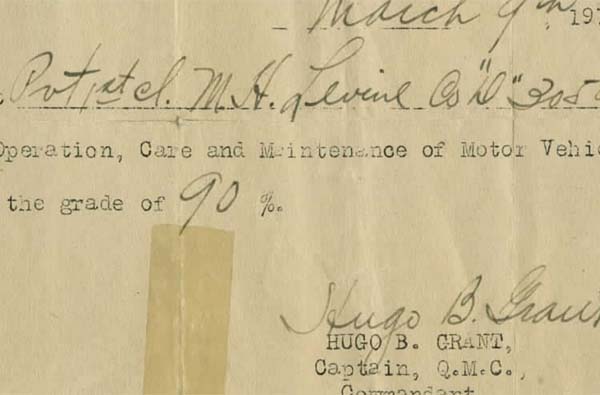 March 9th, 19
Pvt 1st cl. M. H. Levine Co "D" 305
Operation, Care and Maintenance of Motor Vehic
the grade of 90 %.
Hugo B. Grant
HUGO B. GRANT,
Captain, Q.M.C.,
Commandant